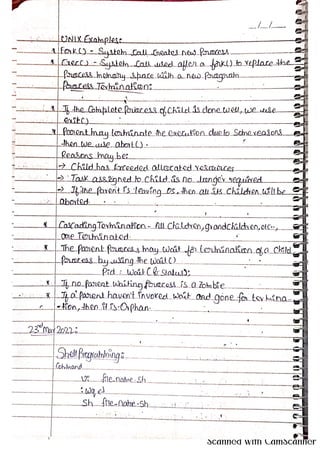 UNIX Examples:
* Fork() - System Call Creates new Process
* Exec() - System Call used after a fork() to replace the
Process memory space with a new Program
Process Termination:
* If the Complete Process of Child is done well, we use
exit()
* Parent may terminate the execution due to some reasons
then we use abort().
Reasons may be:
→ Child has Exceeded allocated resources
→ Task assigned to Child is no longer required
→ If the Parent is leaving OS, then all its Children will be
Aborted
* Cascading Termination - All Children, grandchildren, etc.,
are Terminated
* The Parent Process may Wait for termination of a Child
Process by using the Wait()
Pid : Wait(&Status);
* If no Parent Waiting Process is a Zombie
* If a Parent haven't invoked Wait and gone for termina
-tion, then it is Orphan
23rd Mar 2022:
Shell Programming:
Command
Vi file-name.sh
:wq
Sh file-name.sh
Scanned with CamScanner